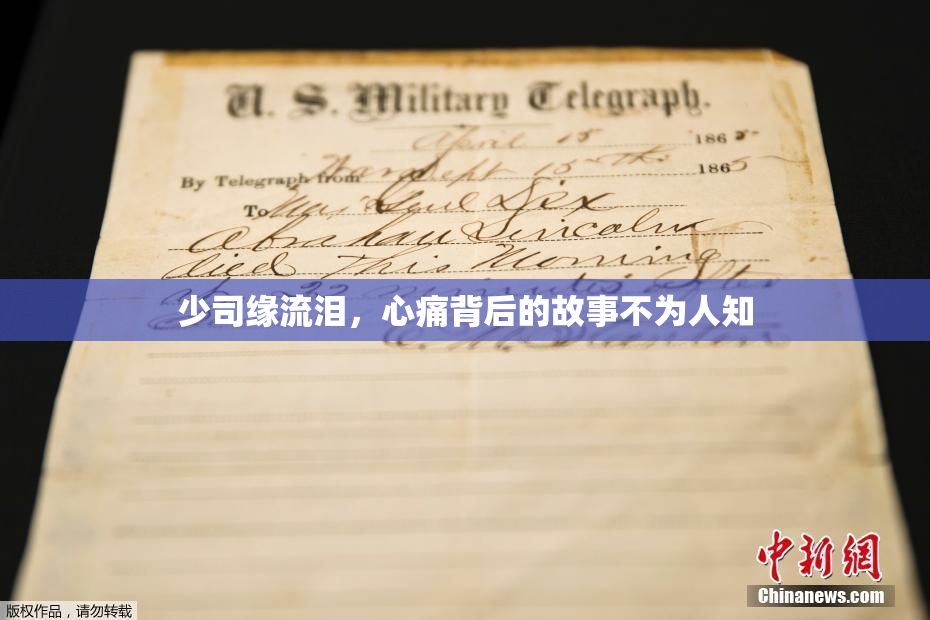 U. S. Military Telegraph.
April 15 1865
By Telegraph from War Dept 15th 1865
To Maj Genl Dix
Abraham Lincoln
died This Morning
22 minutes after
少司缘流泪，心痛背后的故事不为人知
E. M. Stanton
中新網
Chinanews.com
版权作品，请勿转载